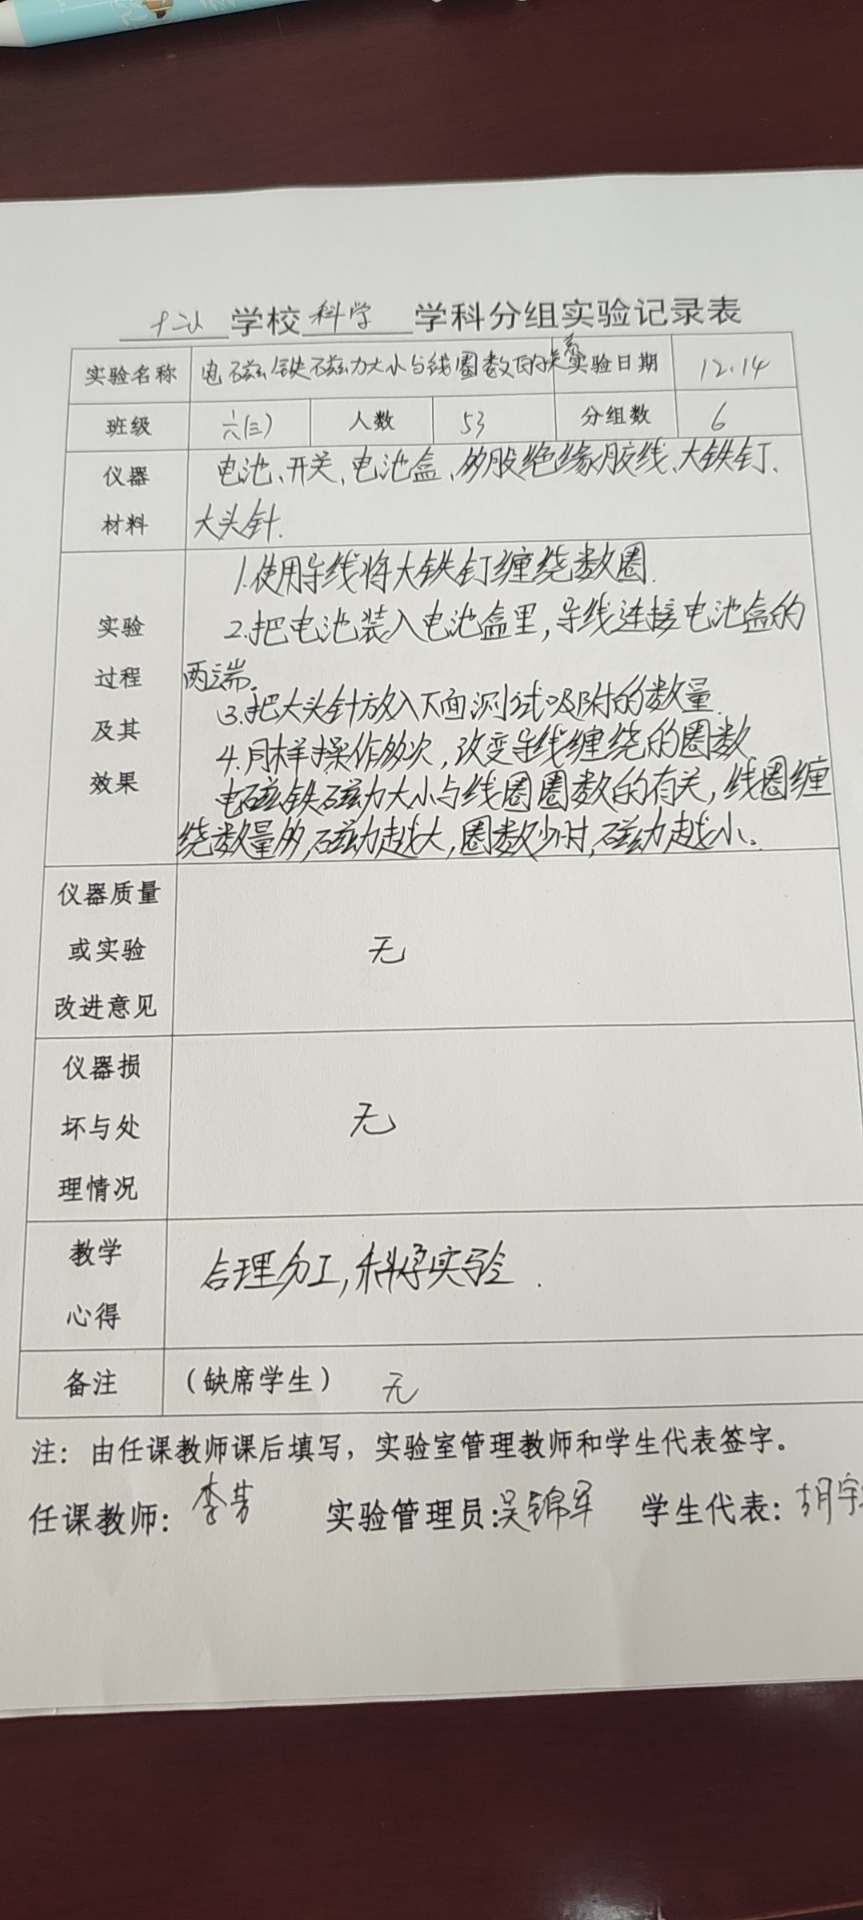 十二小学校科学学科分组实验记录表
实验名称 电磁铁磁力大小与线圈数的关系 实验日期 12.14
班级 六(三) 人数 53 分组数 6
仪器材料 电池、开关、电池盒、多股绝缘胶线、大铁钉、
大头针.
实验过程及其效果
1.使用导线将大铁钉缠绕数圈.
2.把电池装入电池盒里,导线连接电池盒的
两端.
3.把大头针放入下面测试吸附的数量.
4.同样操作多次,改变导线缠绕的圈数
电磁铁磁力大小与线圈圈数的有关,线圈缠
绕数量多,磁力越大,圈数少时,磁力越小。
仪器质量或实验改进意见 无
仪器损坏与处理情况 无
教学心得 合理分工,科学实验.
备注 (缺席学生) 无
注:由任课教师课后填写,实验室管理教师和学生代表签字。
任课教师:李芳 实验管理员:吴锦军 学生代表:胡宇